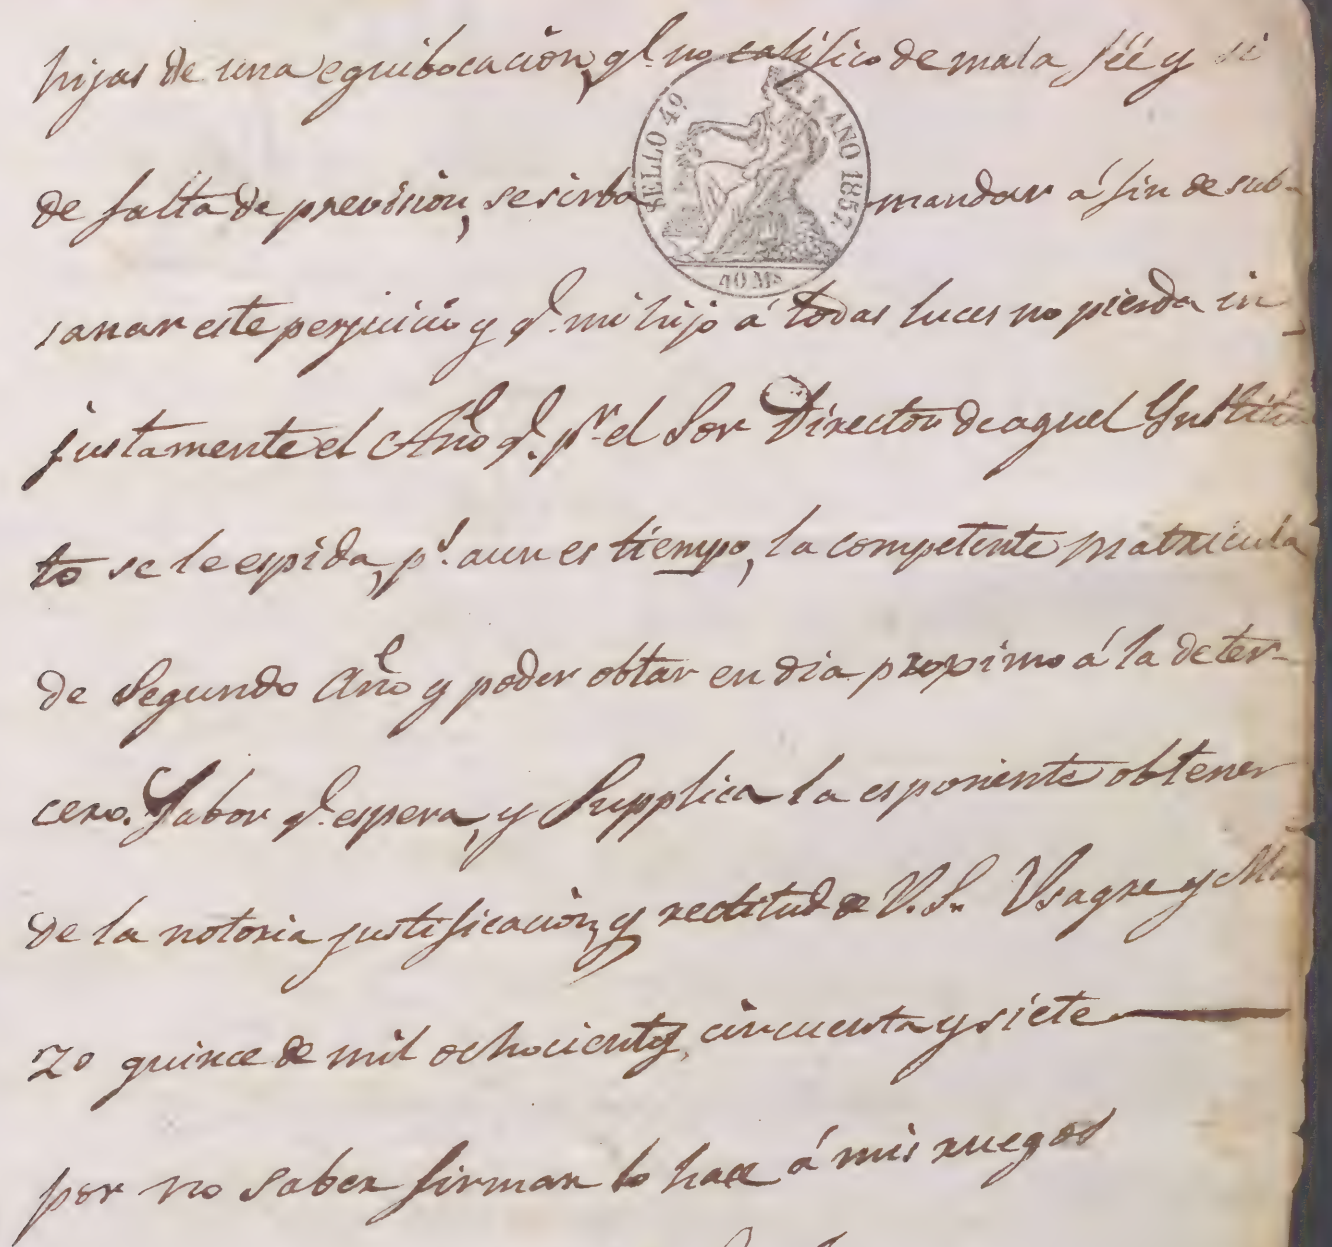 hijas de una equibocación, qe. no califico de mala féé y si
SELLO 4º AÑO 1857.
40 Ms
de falta de prevision, se sirba mandar á fin de sub-
sanar este perjuicio y qe. mi hijo á todas luces no pierda in-
justamente el Año qe. pr. el Sor Director de aquel Ynstitu
to se le espida, ps. aun es tiempo, la competente matricula
de Segundo Año y poder obtar en dia proximo á la de ter-
cero. Fabor qe. espera, y Supplica la esponente obtener
de la notoria justificación, y rectitud de V.S. Usagre y Mar
zo quince de mil ochocientos, cincuenta y siete
por no saber firmar lo hace á mis ruegos